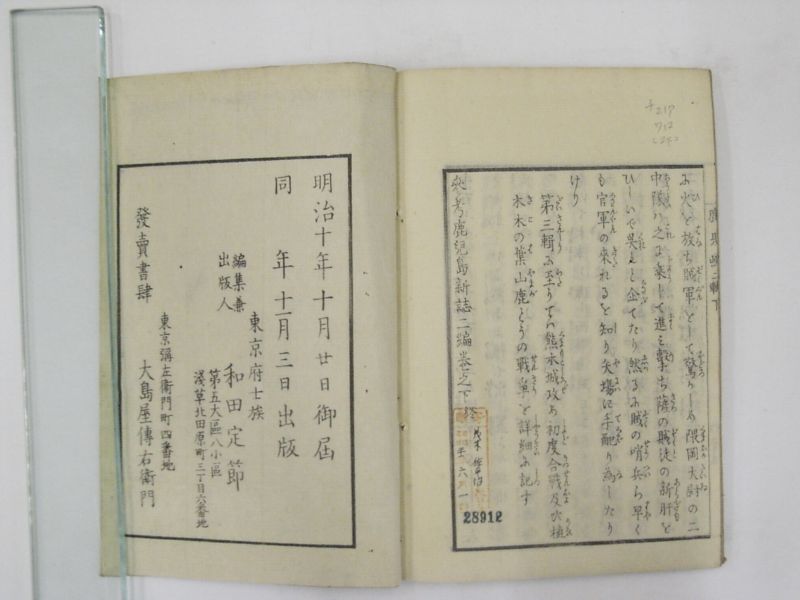 火を放ち賊軍をして驚かしめ隈岡大尉の二
中隊ハ之に乗して進ミ撃ち薩の賊徒の新肝を
ひしいで呉んと企てたり然るに賊の哨兵ら早く
も官軍の来れるを知り矢場に手配り為したり
けり
第三輯に至りてハ熊本城攻め初度合戦及ひ植
木木の葉山鹿とうの戦争を詳細に記す
鹿児島新誌二編巻之下 終
28912
明治十年十月廿日御届
同 年十一月三日出版
編集兼
出版人
東京府士族
和田定節
第五大區八小區
淺草北田原町三丁目六番地
發賣書肆
東京彌左衛門町四番地
大島屋傳右衛門